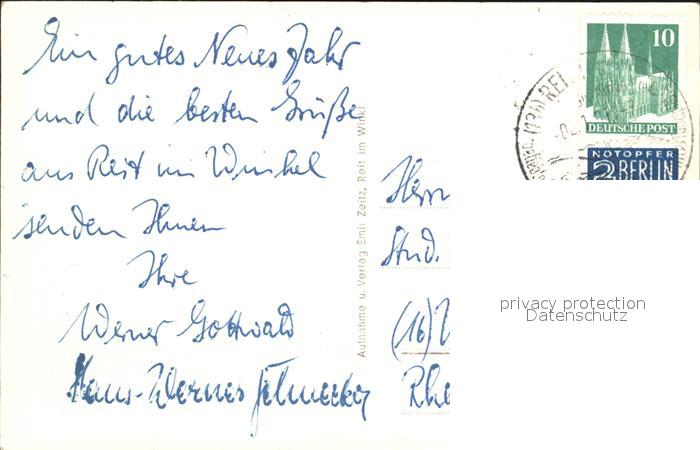 Ein gutes Neues Jahr
und die besten Grüße
aus Reit im Winkel
senden Ihnen
Ihre
Werner Gottwald
Hans-Werner
Aufnahme u. Verlag Emil Zeitz, Reit im Winkl
Herrn
Stud.
(16)
Rhe
10
DEUTSCHE POST
NOTOPFER
2 BERLIN
(13b) REI
privacy protection
Datenschutz